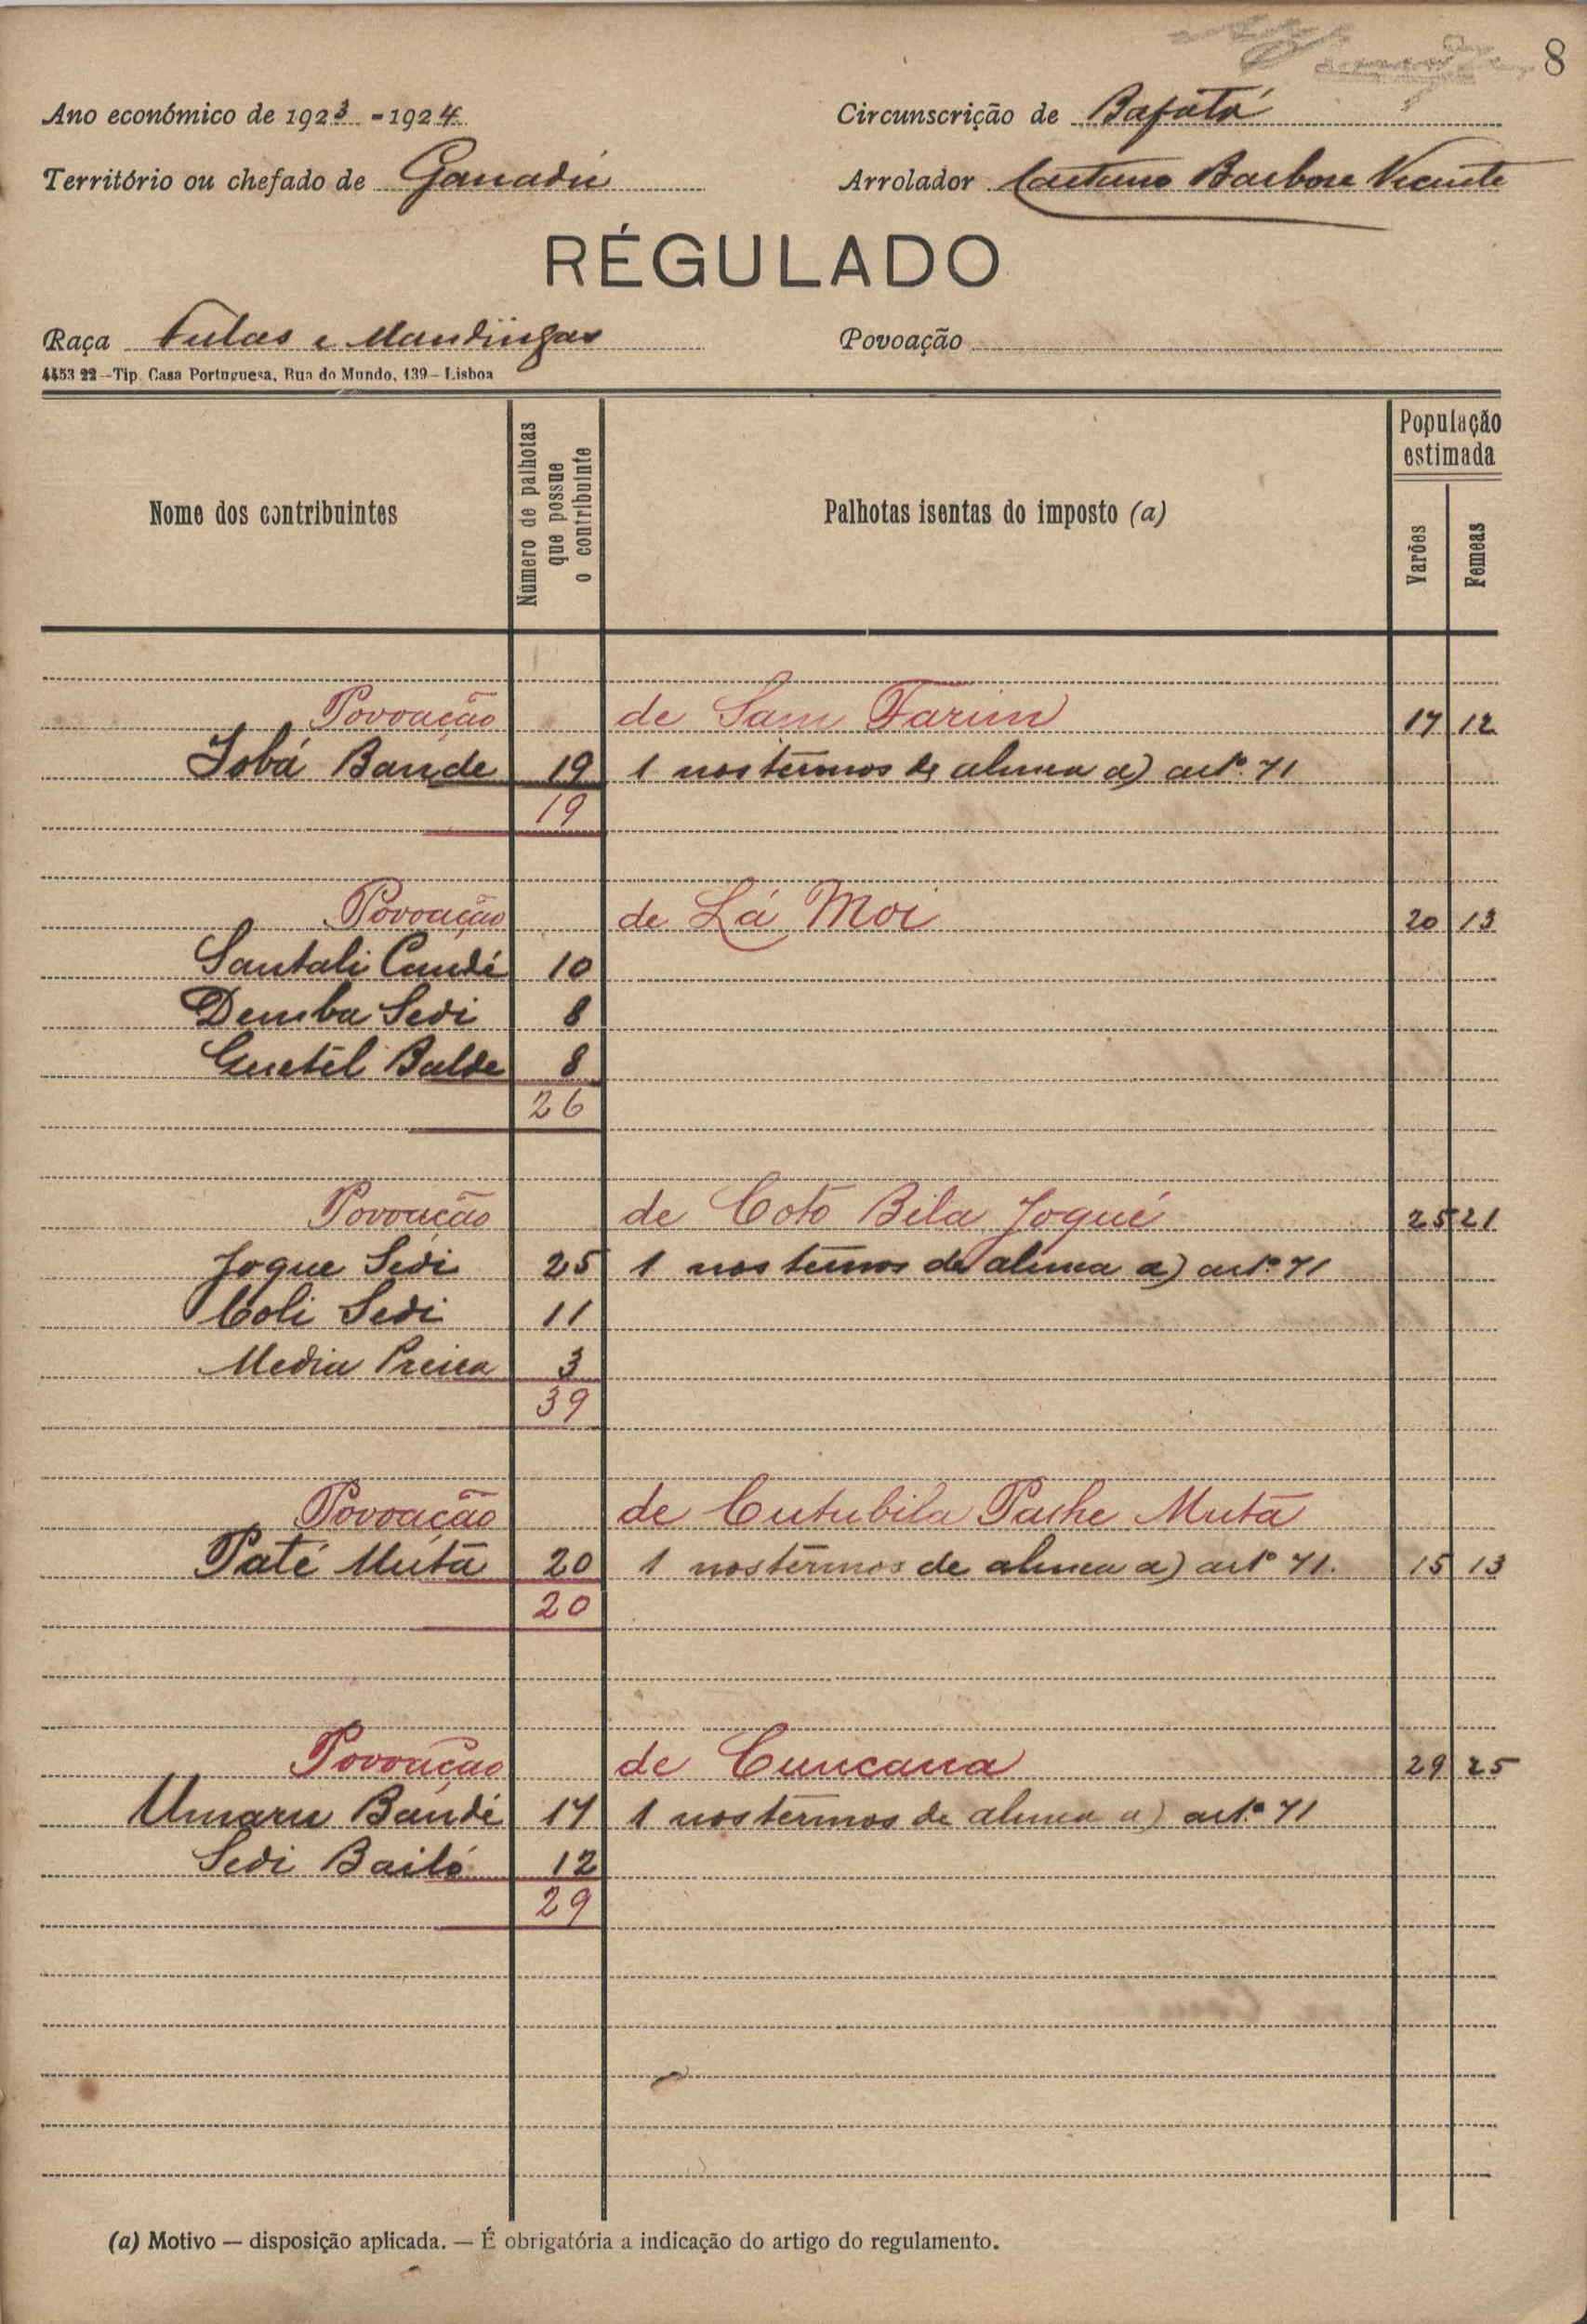 8
Ano económico de 1923 - 1924
Circunscrição de Bafatá
Território ou chefado de Ganadú
Arrolador Caetano Barbosa Vicente
RÉGULADO
Raça Fulas e Mandingas
Povoação
4453 22 - Tip. Casa Portuguesa, Rua do Mundo, 139 - Lisboa
Nome dos contribuintes
Número de palhotas que possue o contribuinte
Palhotas isentas do imposto (a)
População estimada
Varões
Femeas
Povoação de Sam Farim 17 12
Iobá Bande 19 1 nos termos de alinea a) artº 71
19
Povoação de Lá Moi 20 13
Santali Candé 10
Demba Sedi 8
Guetél Balde 8
26
Povoação de Coto Bila Joqué 25 21
Joque Sedi 25 1 nos termos da alinea a) artº 71
Coli Sedi 11
Media 3
39
Povoação de Cutubila Pathe Mutá
Paté Mutá 20 1 nos termos de alinea a) artº 71. 15 13
20
Povoação de Cuncana 29 25
Umaru Bandé 17 1 nos termos de alinea a) artº 71
Sedi Bailó 12
29
(a) Motivo — disposição aplicada. — É obrigatória a indicação do artigo do regulamento.